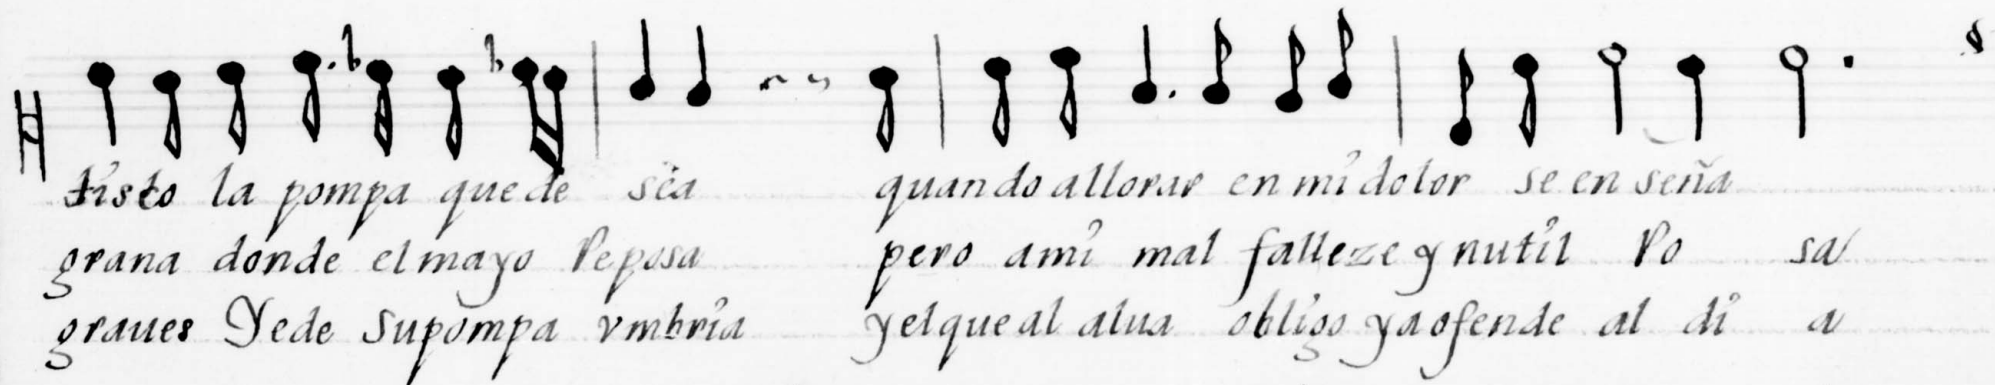 tisto la pompa que de sea quando allorar en mi dolor se enseña
grana donde el mayo Reposa pero ami mal falleze ynutil Ro sa
graues Yede su pompa vmbria yel que al alua obligo ya ofende al di a